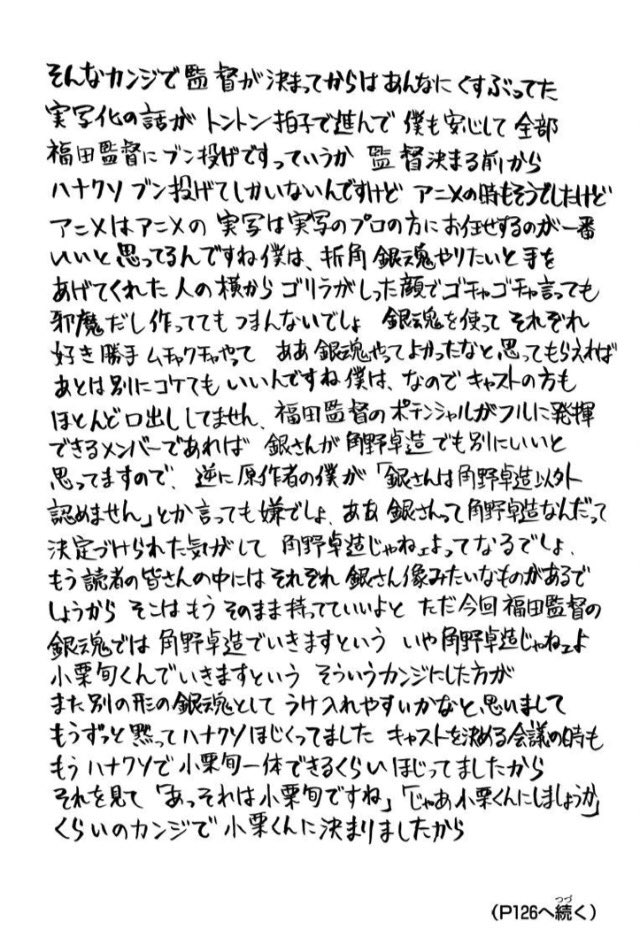 そんなカンジで監督が決まってからはあんなにくすぶってた
実写化の話がトントン拍子で進んで僕も安心して全部
福田監督にブン投げですっていうか監督決まる前から
ハナクソブン投げてしかいないんですけどアニメの時もそうでしたけど
アニメはアニメの実写は実写のプロの方にお任せするのが一番
いいと思ってるんですね僕は、折角銀魂やりたいと手を
あげてくれた人の横からゴリラがしった顔でゴチャゴチャ言っても
邪魔だし作っててもつまんないでしょ 銀魂を使ってそれぞれ
好き勝手ムチャクチャやって ああ銀魂やってよかったなと思ってもらえれば
あとは別にコケてもいいんですね僕は、なのでキャストの方も
ほとんど口出ししてません、福田監督のポテンシャルがフルに発揮
できるメンバーであれば 銀さんが角野卓造でも別にいいと
思ってますので、逆に原作者の僕が「銀さんは角野卓造以外
認めません」とか言っても嫌でしょ、ああ銀さんって角野卓造なんだって
決定づけられた気がして 角野卓造じゃねェよってなるでしょ、
もう読者の皆さんの中にはそれぞれ銀さん像みたいなものがあるで
しょうから そこはもうそのまま持っていていいよと ただ今回福田監督の
銀魂では角野卓造でいきますという いや角野卓造じゃねェよ
小栗旬くんでいきますという そういうカンジにした方が
また別の形の銀魂として うけ入れやすいかなと思いまして
もうずっと黙ってハナクソほじくってました キャストを決める会議の時も
もうハナクソで小栗旬一体できるくらいほじってましたから
それを見て「あっそれは小栗旬ですね」「じゃあ小栗くんにしましょうか」
くらいのカンジで小栗くんに決まりましたから
つづ
(P126へ続く)